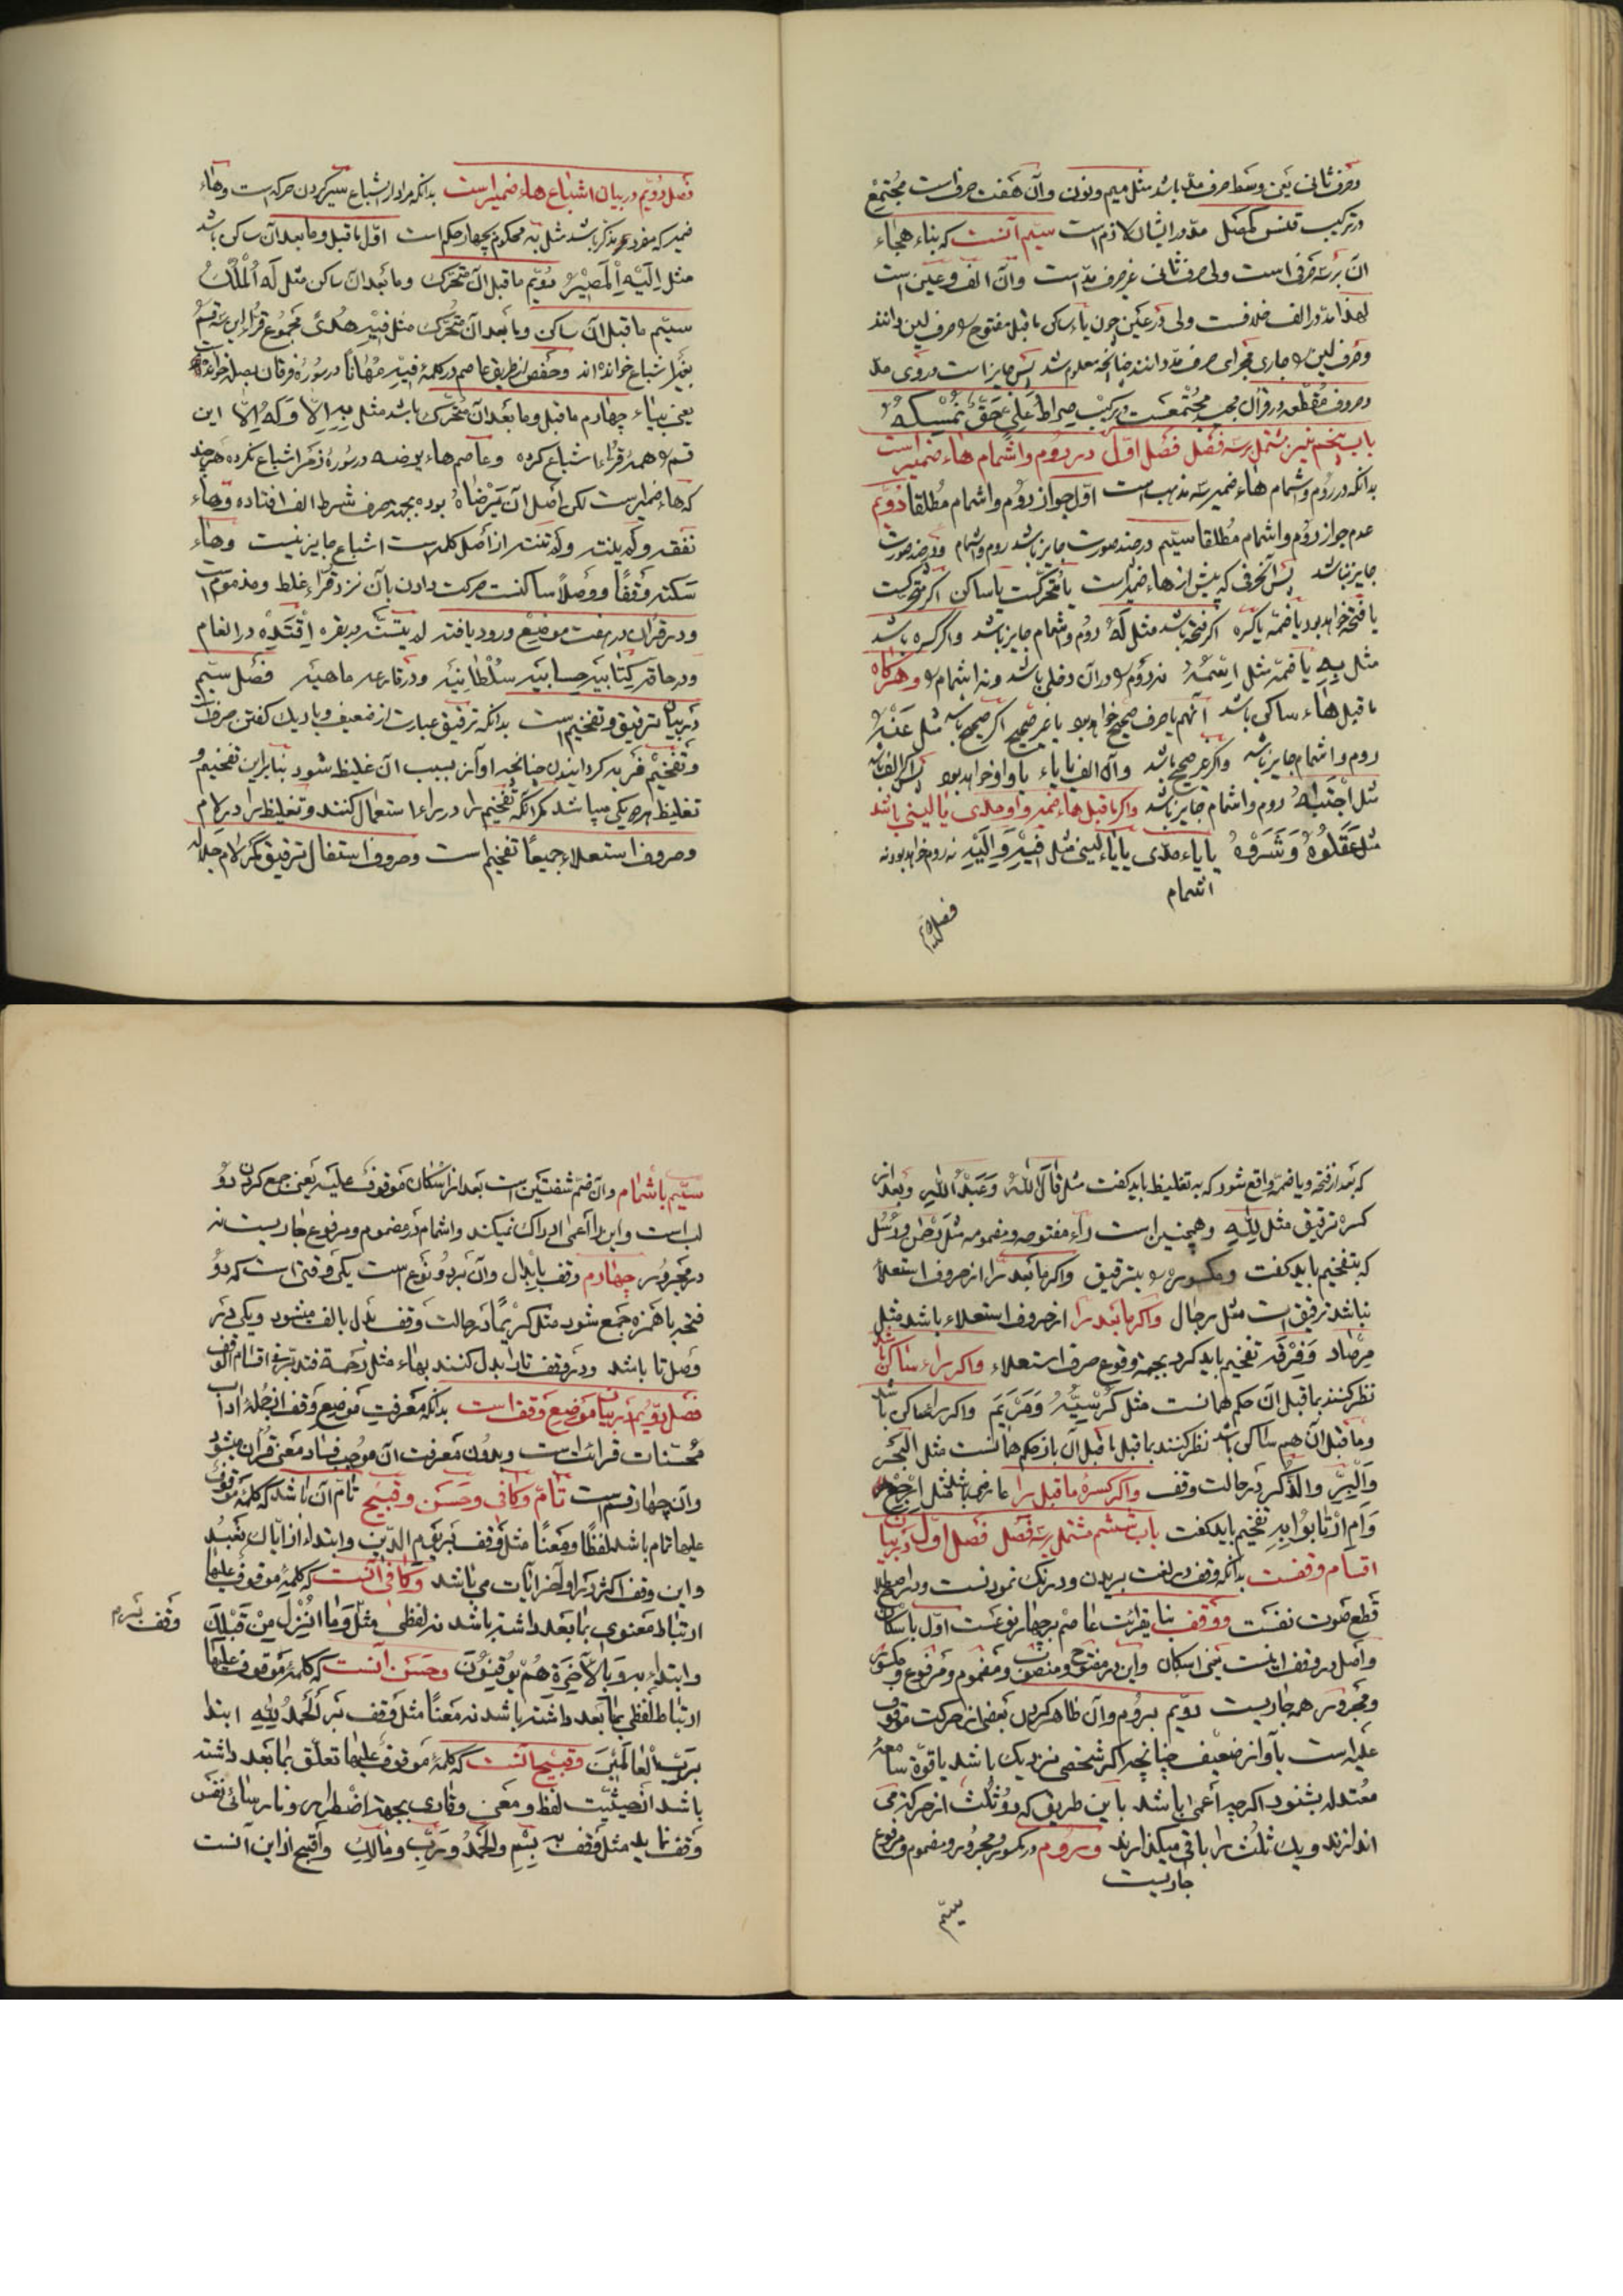 وحرف ثانی یعنی وسط حرف مد باشد مثل میم ونون وآن هفت حرفست مجتمع
در ترکیب نقص مد در ایشان لازم است سیم آنست که بناء هجاء
آن بر سه حرفی است ولی حرف ثانی غیر حرف مد است وآن الف وعین است
لهذا مد در الف ولی در عین چون یاء ساکن ماقبل مفتوح را حرف لین دانند
وحرف لین را جاری مجرای حرف مد دانند چنانچه معلوم شد پس جایز است در وی مد
وحروف مقطعه در قرآن مجید مجتمعست در ترکیب صِراطُ عَلِیٍّ حَقٌّ نُمْسِکُهُ
باب پنجم نیز مشتمل بر سه فصل فصل اوّل در رَوم واشمام هاء ضمیر است
بدانکه در روم واشمام هاء ضمیر سه مذهب است اوّل جواز روم واشمام مطلقا دویم
عدم جواز روم واشمام مطلقا سیّم در چند صورت جایز باشد روم واشمام ودر چند صورت
جایز نباشد پس آنحرفی که پیش از هاء ضمیر است یا متحرکست یا ساکن اگر متحرکست
یا فتحه خواهد بود یا ضمّه یا کسره اگر فتحه باشد مثل لَهُ روم واشمام جایز باشد واگر کسره باشد
مثل بِهِ یا ضمّه مثل نه روم را در آن دخلی باشد ونه اشمام را وهرگاه
ماقبل هاء ساکن باشد آنهم یا حرف صحیح خواهد بود یا غیر صحیح اگر صحیح باشد مثل عَنْهُ
روم واشمام جایز باشد واگر غیر صحیح باشد وآن الف یا یاء یا واو خواهد بود پس اگر الف باشد
مثل اجْتَبٰاهُ روم واشمام جایز باشد واگر ماقبل هاء ضمیر واو مدی یا لینی باشد
مثل عَقَلُوهُ وَشَرَوْهُ یا یاء مدی یا یاء لینی مثل فیهِ وَاِلَیْهِ نه روم خواهد بود نه
اشمام
فصل دویم
فصل دویّم در بیان اشباع هاء ضمیر است بدانکه مراد از اشباع سیر کردن حرکه است وهاء
ضمیر که مفرد مذکر باشد مثل به محکوم بچهار حکم است اوّل ماقبل ومابعد آن ساکن باشد
مثل اِلَیْهِ الْمَصیْرُ دویّم ماقبل آن متحرّک ومابعد آن ساکن مثل لَهُ الْمُلْکُ
سیّم ماقبل آن ساکن ومابعد آن متحرّک مثل فیْهِ هُدیً مجموع قرّاء این سه قسم را
بغیر اشباع خوانده اند وحفص از طریق عاصم در کلمهٔ فیهِ مُهٰاناً در سورهٔ فرقان بصله خوانده
یعنی بیاء چهارم ماقبل ومابعد آن متحرّک باشد مثل بِهِ اِلّا وَلَهُ اِلّا این
قسم را همهٔ قرّاء اشباع کرده وعاصم هاء یرضه در سورهٔ زمر اشباع نکرده هر چند
که هاء ضمیر است لکن اصل آن یَرْضٰاهُ بوده بجهة حرف شرط الف افتاده وهاء
نفقه ولم ینته ولم تنته از اصل کلمه است اشباع جایز نیست وهاء
سکته وقفاً ووصلاً ساکنست حرکت دادن بآن نزد قرّاء غلط ومذموم است
ودر قرآن در هفت موضع ورود یافته لم یتسنّه بقره اِقْتَدِهْ در انعام
ودر حاقه کِتٰابیَه حِسابیَه سُلْطٰانیَه ودر قارعه ماهیَه فصل سیّم
در بیان ترقیق وتفخیم است بدانکه ترقیق عبارت از ضعیف وباریک گفتن حرف است
وتفخیم فربه گردانیدن چنانچه آواز بسبب آن غلیظ شود بنابر این تفخیم و
تغلیظ هر دو یکی میباشد مگر آنکه تفخیم را در راء استعمال کنند وتغلیظ را در لام
وحروف استعلاء جمیعاً تفخیم است وحروف استفال ترقیق مگر لام جلاله
که بعد از فتحه ویا ضمّه واقع شود که به تغلیظ باید گفت مثل قٰالَ اللّٰهُ وَعَبْدُ اللّٰهِ وبعد از
کسره ترقیق مثل لِلّٰهِ وهمچنین است راء مفتوحه ومضمومه مثل رَحْمٰن ورُسُل
که بتفخیم باید گفت ومکسوره را بترقیق واگر مابعد راء از حروف استعلاء
نباشد ترقیق است مثل رجال واگر مابعد راء از حروف استعلاء باشد مثل
مِرصاد وَفِرْقَه تفخیم باید کرد بجهة وقوع حرف استعلاء واگر راء ساکن باشد
نظر کنند بماقبل آن حکم همانست مثل کُرْسِیُّهُ وَمَرْیَمَ واگر راء ساکن باشد
وماقبل آن هم ساکن باشد نظر کنند بماقبل ماقبل آن باز حکم همانست مثل البَحْر
وَالْبِرّ والذِّکر در حالت وقف واگر کسرهٔ ماقبل راء عارضی باشد مثل اِرْجِعْ
وَاَمِ ارْتٰابُوا بِهِ تفخیم باید گفت باب ششم مشتمل بر سه فصل فصل اوّل در بیان
اقسام وقفست بدانکه وقف در لغت بریدن ودرنک نمودنست ودر اصطلاح
قطع صوت نفست ووقف بنا بقرائت عاصم بر چهار نوعست اوّل باسکان
واصل در وقف اینست یعنی اسکان واین در مفتوح ومنصوب ومضموم ومرفوع ومکسور
ومجرور همه جاریست دویّم بروم وآن ظاهر کردن بعضی از حرکت موقوف
علیه است بآواز ضعیف چنانچه اگر شخصی نزدیک باشد با قوّهٔ سامعهٔ
معتدله بشنود اگر چه اعمی باشد باین طریق که دو ثلث از حرکة می
اندازند ویک ثلث را باقی میگذارند وروم در مکسور ومجرور ومضموم ومرفوع
جاریست
سیّم
سیّم باشمام وآن ضمّ شفتین است بعد از اسکان موقوف علیه یعنی جمع کردن دو
لب است واین را اعمی ادراک نمیکند واشمام در مضموم ومرفوع جاریست نه
در مجرور چهارم وقف بابدال وآن بر دو نوع است یکی وقتی است که دو
فتحه با همزه جمع شود مثل کریماً در حالت وقف بدل بالف میشود ویکی در
وصل تا باشد ودر وقف تا را بدل کنند بهاء مثل رحمة اقسام الوقف
فصل دویّم در بیان موضع وقف است بدانکه معرفت موضع وقف از جملهٔ آداب
محسّنات قرائت است وبدون معرفت آن موجب فساد معنی قرآن میشود
وآن چهار قسم است تٰامّ وکٰافی وحَسَن وقَبیح تام آن باشد که کلمهٔ موقوف
علیها تمام باشد لفظاً ومعناً مثل وقف بر یوم الدّین وابتداء از ایّاک نعبد
واین وقف اکثر در اواخر آیات می باشد وکٰافی آنست که کلمهٔ موقوف علیها
ارتباط معنوی بمابعد داشته باشد نه لفظی مثل وَمٰا اُنْزِلَ مِنْ قَبْلِکَ
وقف بَروم
وابتداء به وَبِالْآخِرَةِ هُمْ یُوقِنُونَ وحَسَن آنست که کلمهٔ موقوف علیها
ارتباط لفظی بمابعد داشته باشد نه معناً مثل وقف بر اَلْحَمْدُ لِلّٰهِ ابتدا
بِرَبِّ الْعٰالَمینَ وقبیح آنست که کلمهٔ موقوف علیها تعلّق بمابعد داشته
باشد از حیثیّت لفظ ومعنی وقاری بجهة اضطرار ونارسائی نفس
وقف نماید مثل وقف به بِسْمِ والْحَمْدُ ورَبِّ ومٰالِکِ واقبح از این آنست